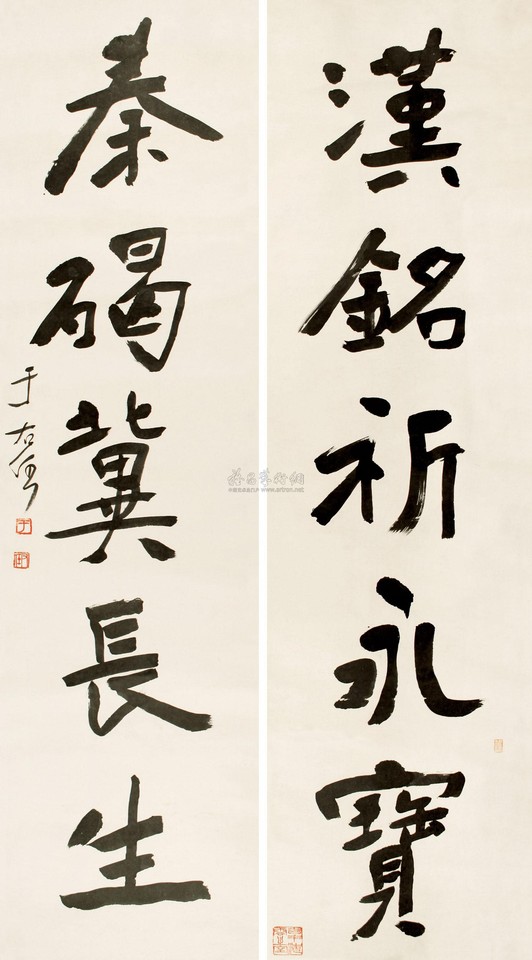 漢銘祈永寶
秦碣冀長生
于右任
www.artron.net